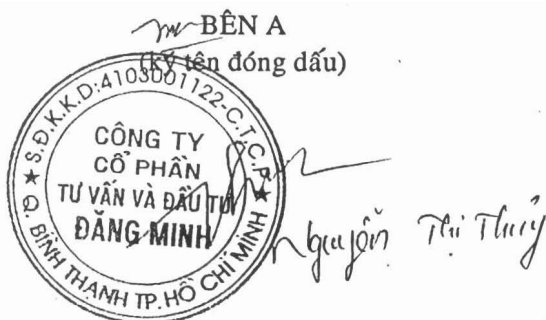 BÊN A
(ký tên đóng dấu)
S.Đ.K.K.D:4103001122-C.T.C.P
CÔNG TY
CỔ PHẦN
TƯ VẤN VÀ ĐẦU TƯ
ĐĂNG MINH
Q. BÌNH THẠNH TP. HỒ CHÍ MINH
Nguyễn Thị Thuỷ